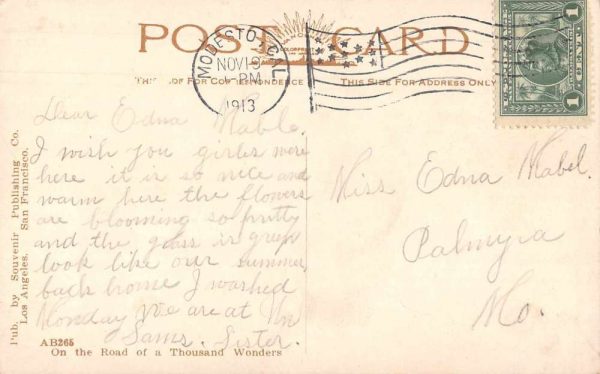 POST CARD
MODESTO, CAL.
NOV 19
PM
1913
THIS SIDE FOR CORRESPONDENCE
THIS SIDE FOR ADDRESS ONLY
1
1
Dear Edna Mable.
I wish you girls were
here it is so nice and
warm here the flowers
are blooming so pretty
and the grass is green
look like our summer
back home I washed
Monday We are at Wm
Sams. Sister.
Miss Edna Mabel.
Palmyra
Mo.
Pub. by Souvenir Publishing Co.
Los Angeles. San Francisco.
AB265
On the Road of a Thousand Wonders